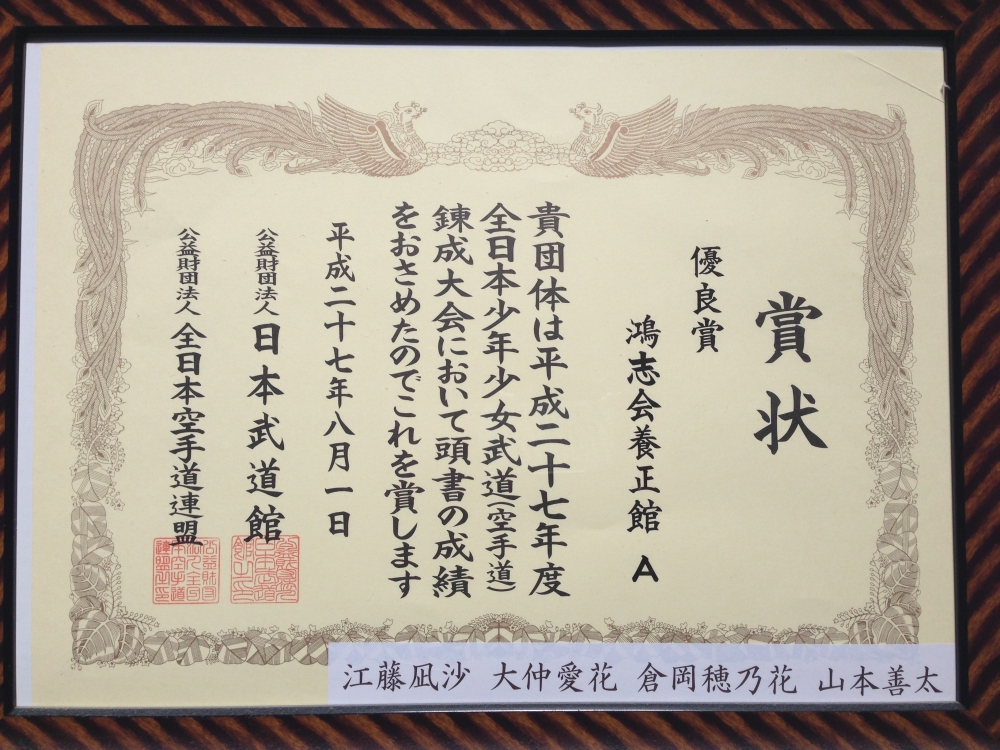 賞状
優良賞
鴻志会養正館 A
貴団体は平成二十七年度
全日本少年少女武道(空手道)
錬成大会において頭書の成績
をおさめたのでこれを賞します
平成二十七年八月一日
公益財団法人 日本武道館
公益財団法人 全日本空手道連盟
江藤凪沙 大仲愛花 倉岡穂乃花 山本善太